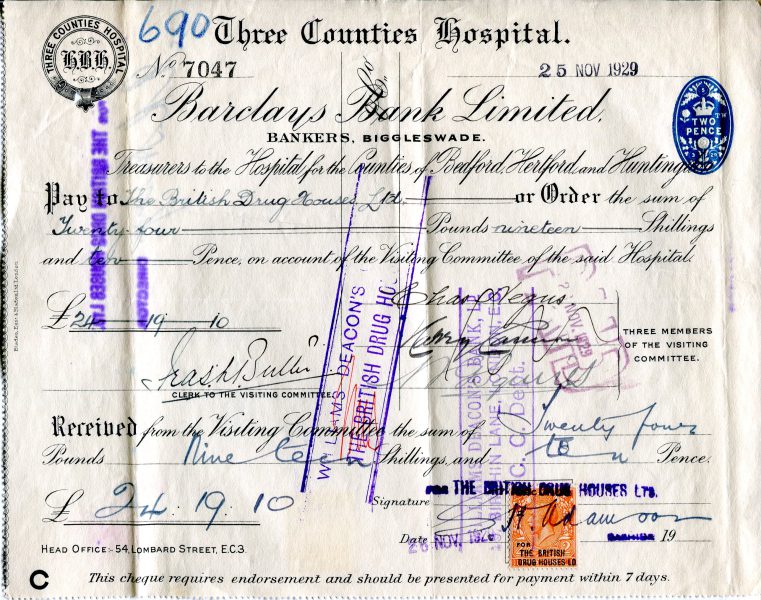 690 Three Counties Hospital.
THREE COUNTIES HOSPITAL
HBH
No 7047
25 NOV 1929
Barclays Bank Limited,
BANKERS, BIGGLESWADE.
TWO PENCE
Treasurers to the Hospital for the Counties of Bedford, Hertford, and Huntingdon
Pay to The British Drug Houses Ltd. or Order the sum of
Twenty four Pounds nineteen Shillings
and ten Pence, on account of the Visiting Committee of the said Hospital.
£24-19-10
THREE MEMBERS
OF THE VISITING
COMMITTEE.
CLERK TO THE VISITING COMMITTEE.
WILLIAMS DEACON'S
THE BRITISH DRUG HO
THE BRITISH DRUG HOUSES LTD.
DIRECTOR
NOV. 1929
WILLIAMS DEACON'S BANK, LTD.
C. C. Dept.
Received from the Visiting Committee the sum of Twenty four
Pounds Nineteen Shillings, and ten Pence.
£ 24.19.10
Signature
FOR THE BRITISH DRUG HOUSES LTD.
Date 26 NOV. 1929 19
FOR
THE BRITISH
DRUG HOUSES LD
HEAD OFFICE:- 54, LOMBARD STREET, E.C.3.
C
This cheque requires endorsement and should be presented for payment within 7 days.